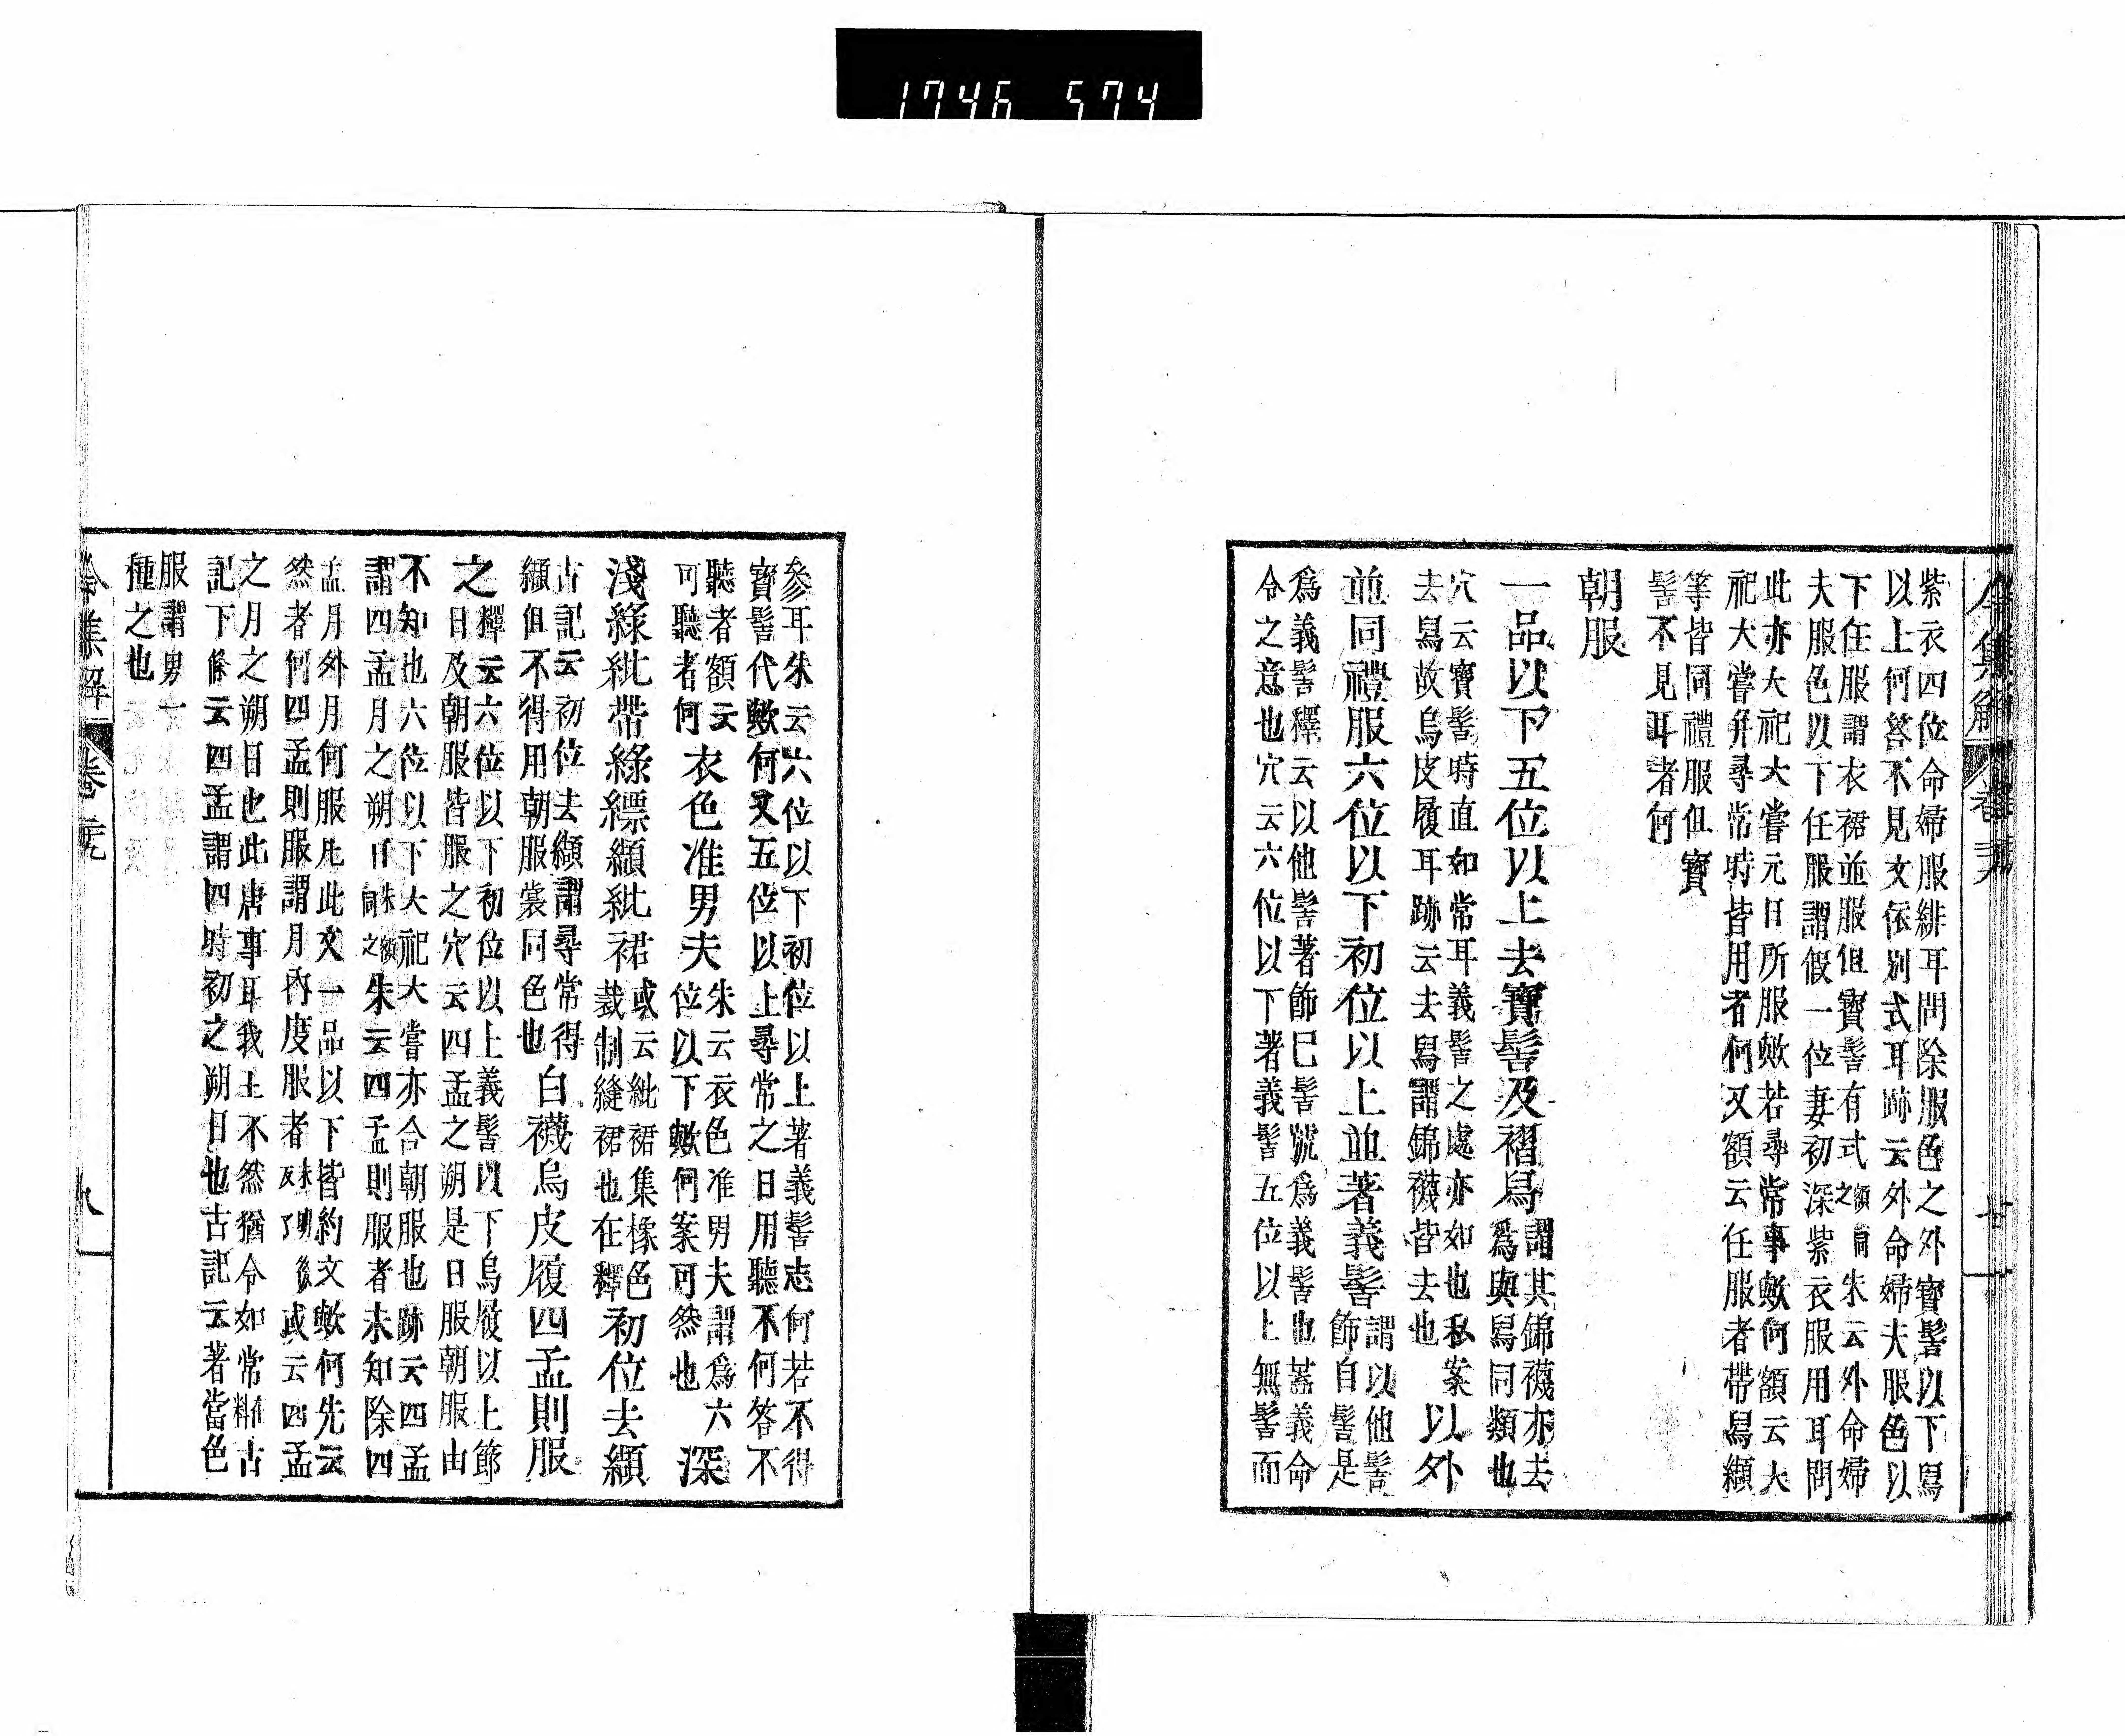 1746 574
令集解 卷廿九
紫衣四位命婦服緋耳問除服色之外寶髻以下舄
以上何答不見文依別式耳跡云外命婦夫服色以
下任服謂衣裙並服但寶髻有式額同之朱云外命婦
夫服色以下任服謂假一位妻初深紫衣服用耳問
此亦大祀大嘗元日所服歟若尋常事歟何額云大
祀大嘗幷尋常時皆用者何又額云任服者帶舄纈
等皆同禮服但寶
髻不見耳者何
朝服
一品以下五位以上去寶髻及褶舄謂其錦襪亦去
爲與舄同類也
穴云寶髻時直如常耳義髻之處亦如也私案
去舄故烏皮履耳跡云去舄謂錦襪皆去也
以外
並同禮服六位以下初位以上並著義髻謂以他髻
飾自髻是
爲義髻釋云以他髻著飾巳髻號爲義髻也蓋義命
令之意也穴云六位以下著義髻五位以上無髻而
參耳朱云六位以下初位以上著義髻志何若不得
寶髻代歟何又五位以上尋常之日用聽不何答不
聽者額云
可聽者何
衣色准男夫朱云衣色准男夫謂爲六
位以下歟何案可然也
深
淺綠紕帶綠縹纈紕裙或云紕裙集橡色
裁制縫裙也在釋
初位去纈
古記云初位去纈謂尋常得
纈但不得用朝服裳同色也
白襪烏皮履四孟則服
之釋云六位以下初位以上義髻以下烏履以上節
日及朝服皆服之穴云四孟之朔是日服朝服由
不知也六位以下大祀大嘗亦合朝服也跡云四孟
謂四孟月之朔日朱額同之朱云四孟則服者未知除四
孟月外月何服此此文一品以下皆約文歟何先云
然者何四孟則服謂月內度服者朱及明了後或云四孟
之月之朔日也此唐事耳我土不然猶令如常在料古
記下條云四孟謂四時初之朔日也古記云著當色
服謂男一
種之也
令集解 卷廿九
九